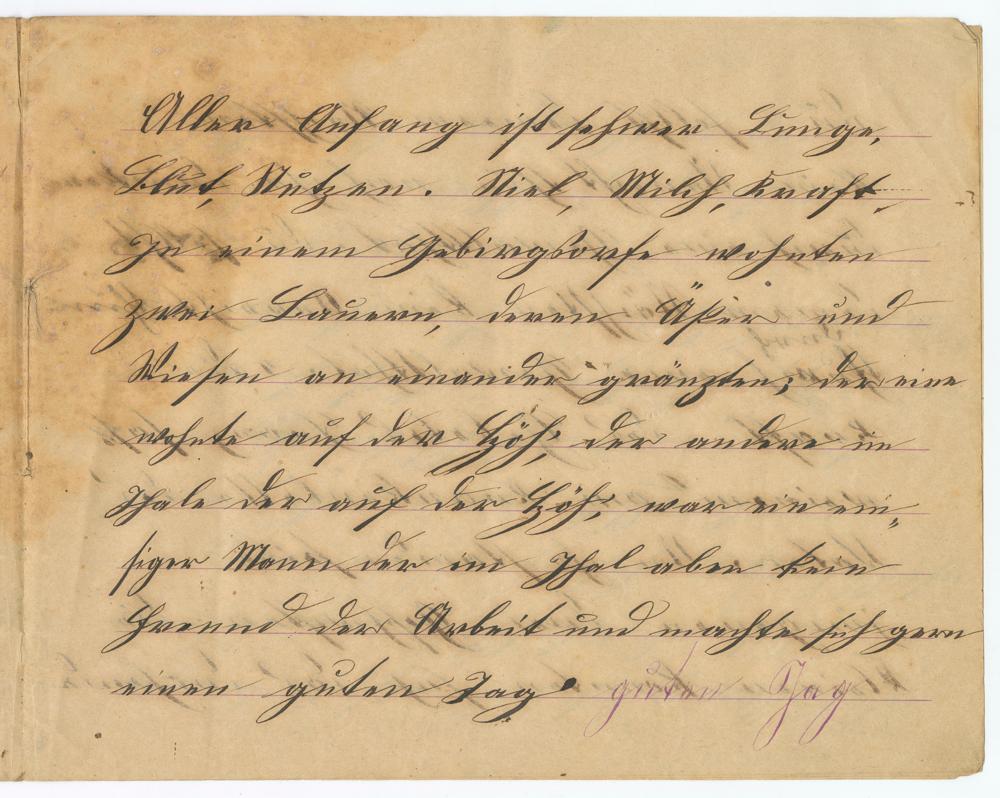 Aller Anfang ist schwer Lunge,
Blut, Nutzen. Stiel, Milch, Kraft
In einem Gebirgsdorfe wohnten
zwei Bauern, deren Äker und
Wiesen an einander gränzten; der eine
wohnte auf der Höh, der andere im
Thale der auf der Höh, war ein em„
siger Mann der im Thal aber kein
Freund der Arbeit und machte sich gern
einen guten Tag. guten Tag